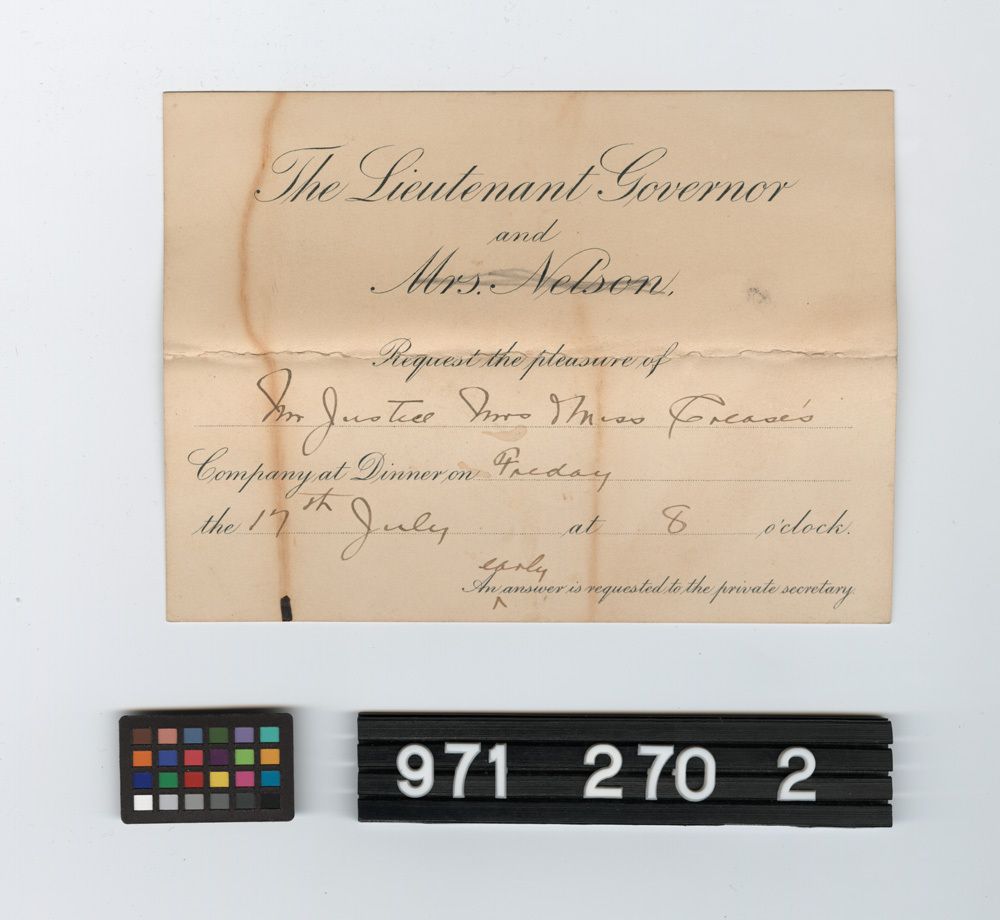 The Lieutenant Governor
and
Mrs. Nelson,
Request the pleasure of
Mr Justice Mrs Miss Crease's
Company at Dinner, on Friday
the 17th July at 8 o'clock.
early
An answer is requested to the private secretary.
971 270 2